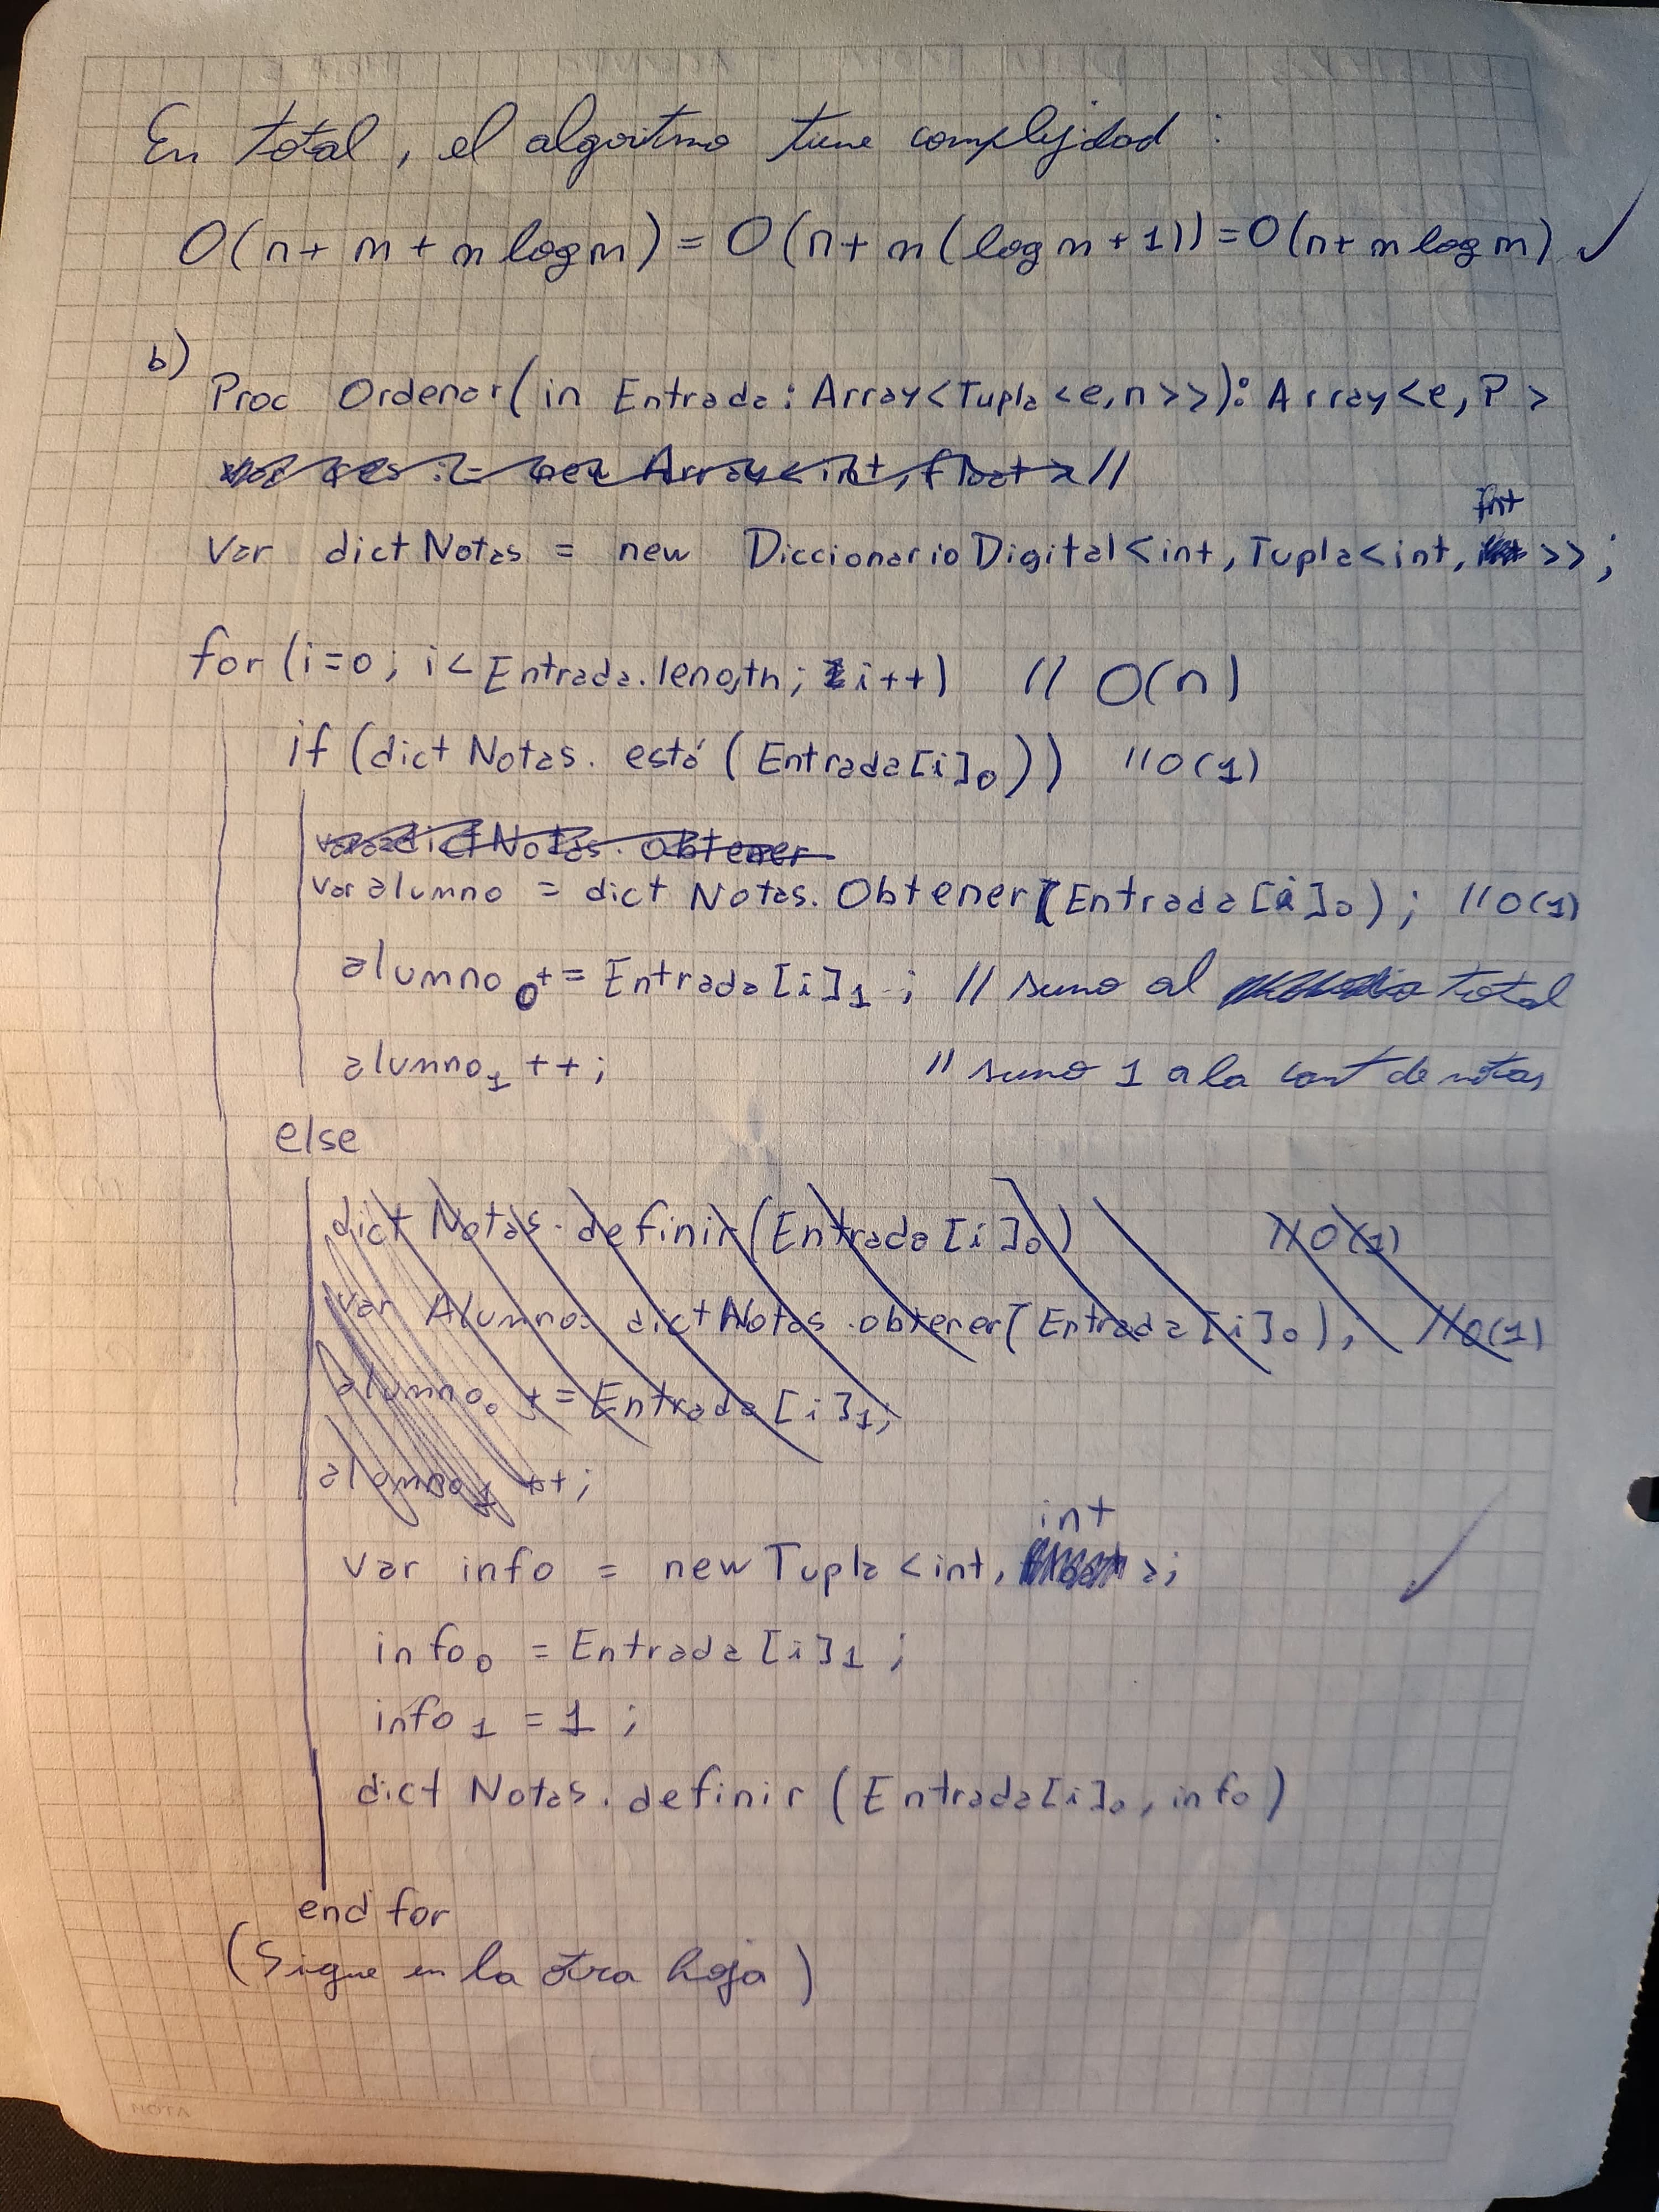 En total, el algoritmo tiene complejidad :
O(n + m + m log m) = O(n + m (log m + 1)) = O(n + m log m) ✓
b)
Proc Ordenar(in Entrada: Array<Tupla<e,n>>): Array<e, P>
var res := new Array<int, float> //
int
Var dictNotas = new DiccionarioDigital<int, Tupla<int, >>;
for (i=0; i< Entrada.length; i++) // O(n)
if (dictNotas. está (Entrada[i]₀)) // O(1)
var dictNotas. obtener
var alumno = dictNotas. Obtener(Entrada[i]₀); // O(1)
alumno₀ += Entrada[i]₁; // sumo al total
alumno₁ ++; // sumo 1 a la cant de notas
else
dictNotas. definir(Entrada[i]₀) // O(1)
var Alumno: dictNotas. obtener(Entrada[i]₀), // O(1)
alumno₀ += Entrada[i]₁;
alumno₁ ++;
int
var info = new Tupla<int, >;
info₀ = Entrada[i]₁;
info₁ = 1;
dictNotas. definir (Entrada[i]₀, info)
✓
end for
(Sigue en la otra hoja)
NOTA